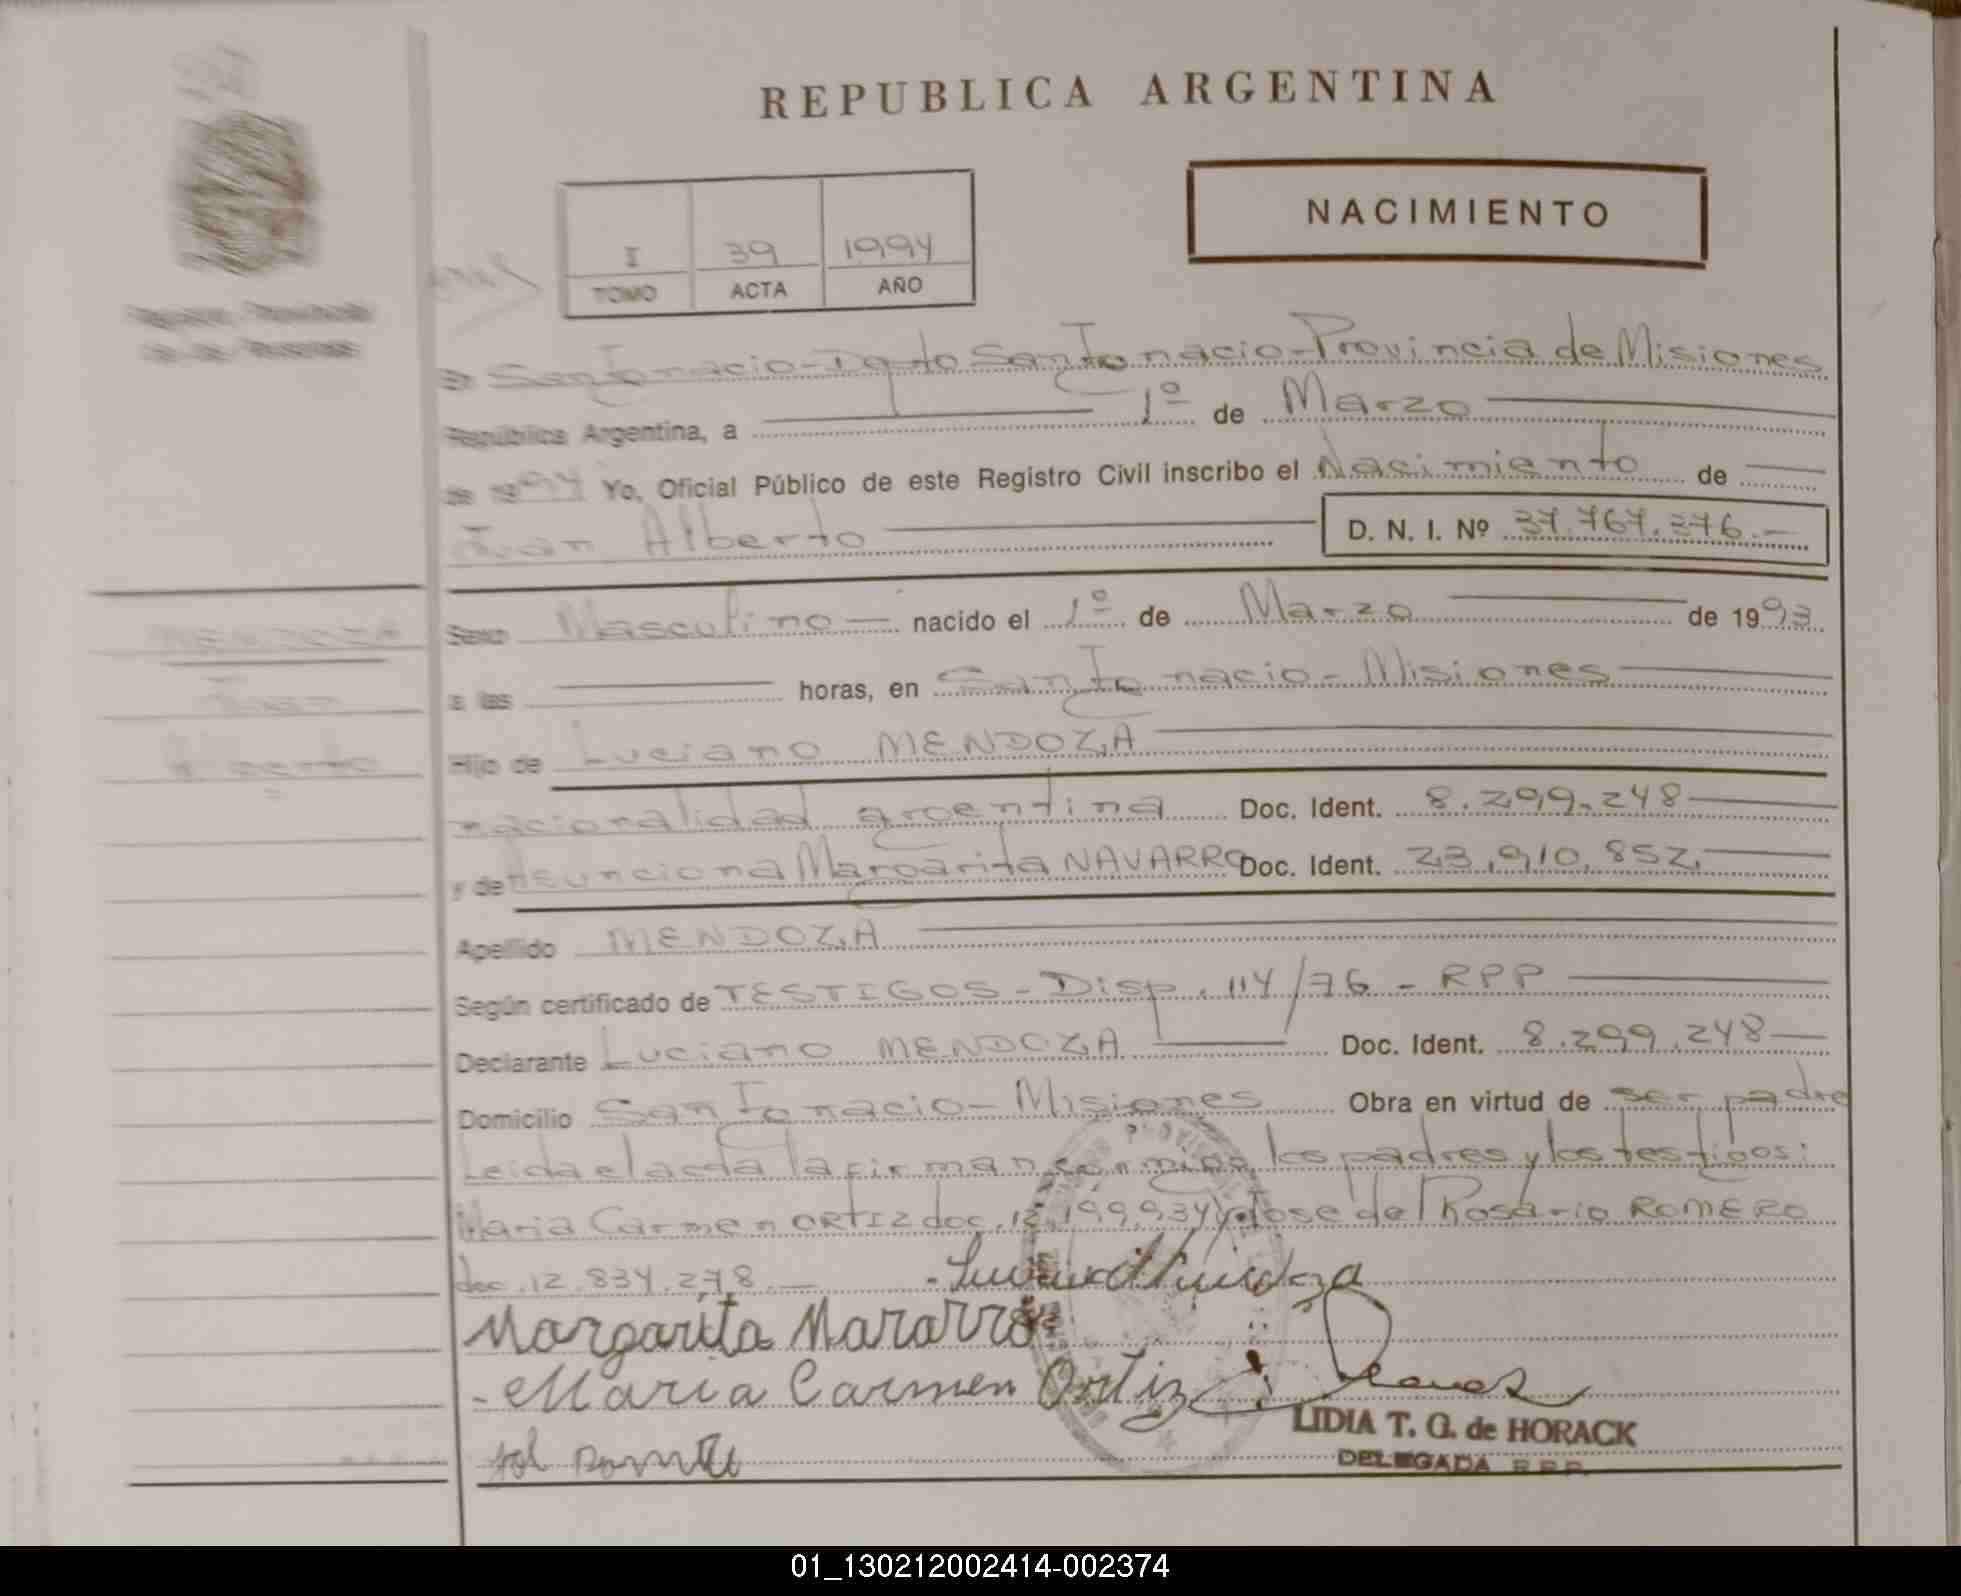 REPUBLICA ARGENTINA
NACIMIENTO
I 39 1994
TOMO ACTA AÑO
San Ignacio - Dpto San Ignacio - Provincia de Misiones
República Argentina, a 1º de Marzo
de 1994 Yo, Oficial Público de este Registro Civil inscribo el Nacimiento de
Alberto D. N. I. Nº 37.767.376.-
Sexo Masculino nacido el 1º de Marzo de 1993
a las horas, en San Ignacio - Misiones
Hijo de Luciano MENDOZA
nacionalidad argentina Doc. Ident. 8.299.248
y de Asunciona Margarita NAVARRO Doc. Ident. 23.910.852
Apellido MENDOZA
Según certificado de TESTIGOS - Disp. 114/76 - RPP
Declarante Luciano MENDOZA Doc. Ident. 8.299.248
Domicilio San Ignacio - Misiones Obra en virtud de ser padre
Leida el acta la firman conmigo los padres y los testigos:
Maria Carmen ORTIZ doc. 12.199.934 y Jose del Rosario ROMERO
doc. 12.834.278.-
Margarita Navarro
Maria Carmen Ortiz
LIDIA T. G. de HORACK
DELEGADA R.P.P.
MENDOZA
Alberto
01_130212002414-002374